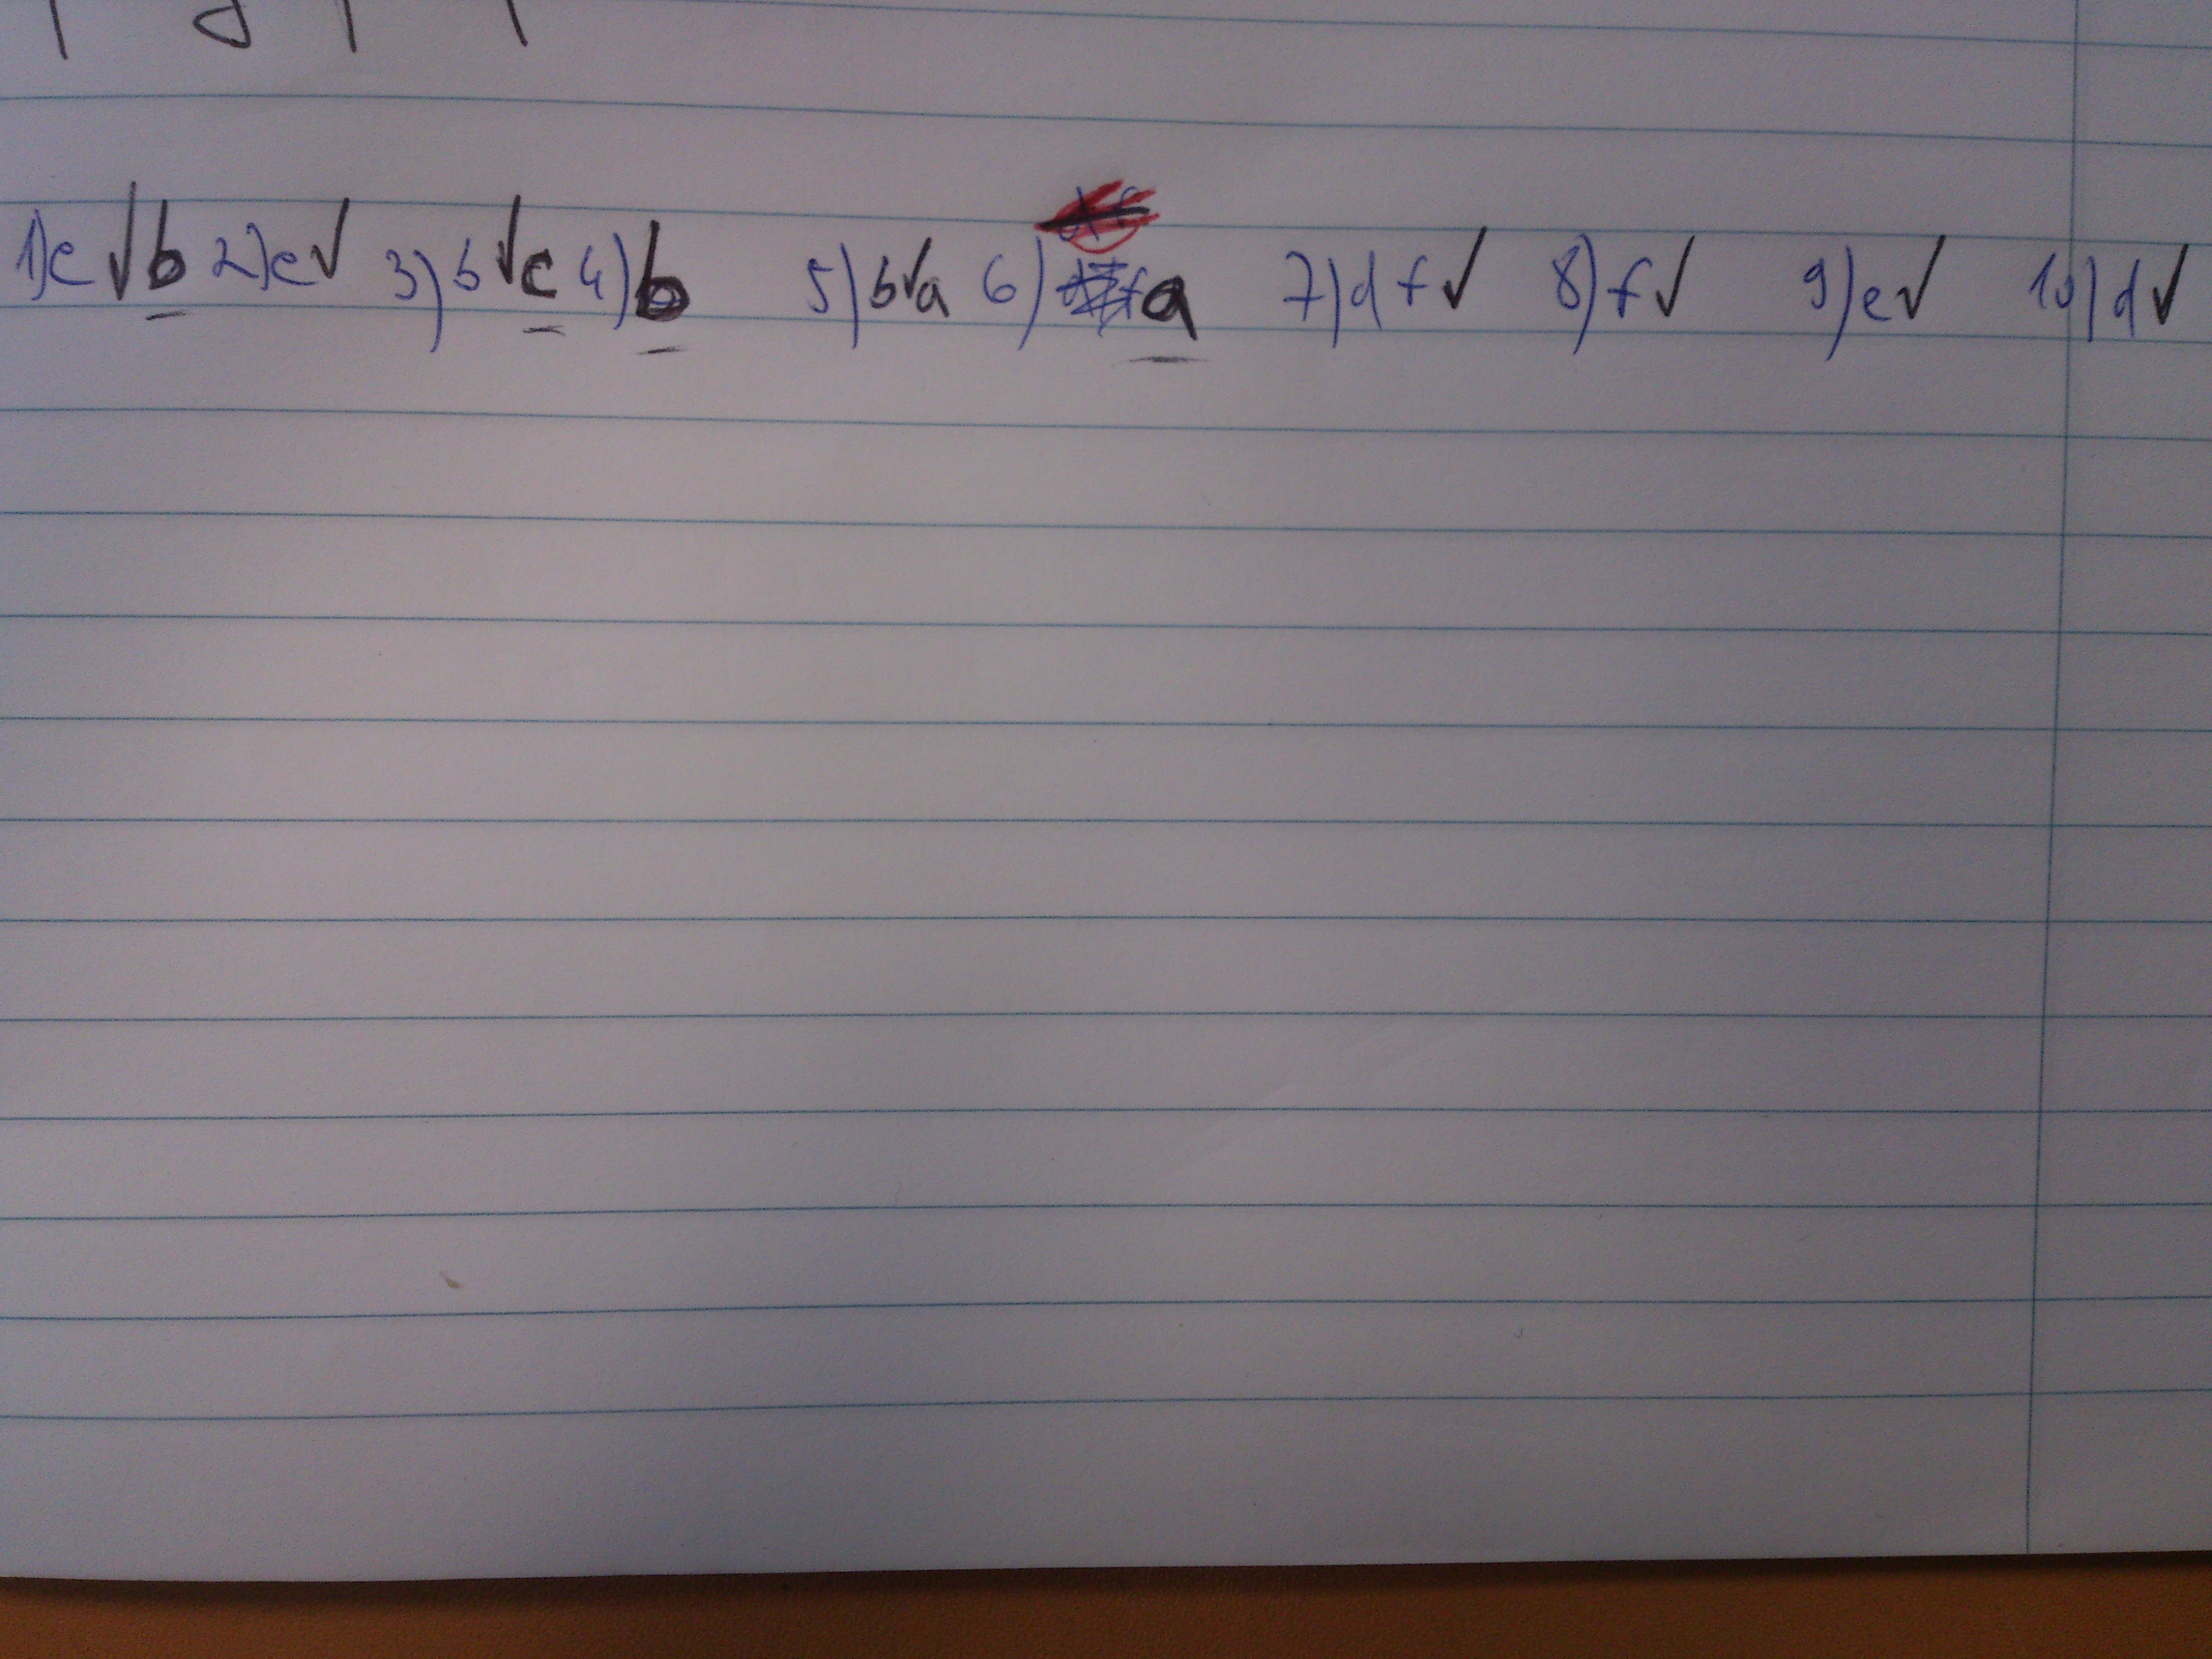 1)c √ b 2)c √ 3) b √ c 4) b 5) b √ a 6) a 7) d f √ 8) f √ 9) e √ 10) d √